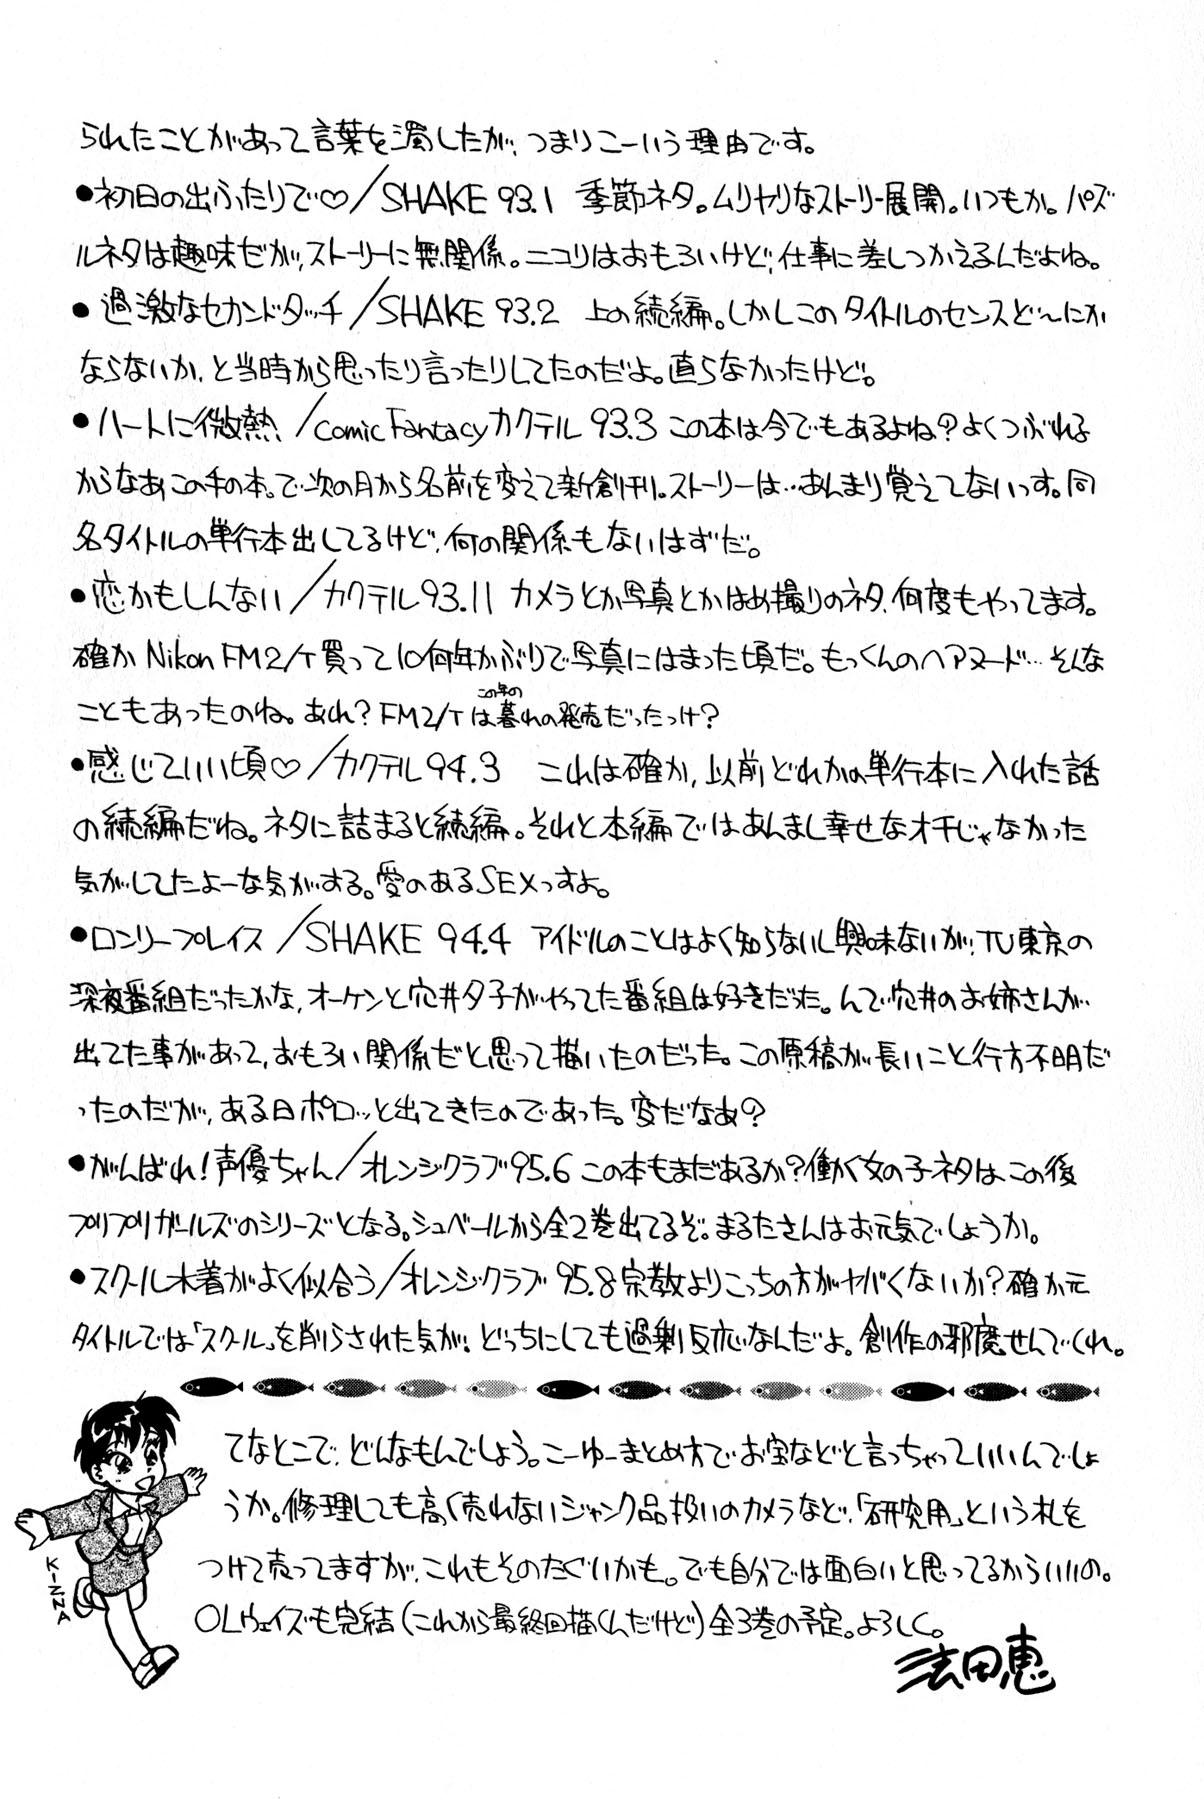 られたことがあって言葉を濁したが、つまりこーいう理由です。
●初日の出ふたりで♡／SHAKE 93.1 季節ネタ。ムリヤリなストーリー展開。いつもか。パズ
ルネタは趣味だが、ストーリーに無関係。ニコリはおもろいけど、仕事に差しつかえるんだよね。
●過激なセカンドタッチ／SHAKE 93.2 上の続編。しかしこのタイトルのセンスど〜にか
ならないか、と当時から思ったり言ったりしてたのだよ。直らなかったけど。
●ハートに微熱／Comic Fantasyカクテル 93.3 この本は今でもあるよね？よくつぶれる
からなあこの手の本。で次の月から名前を変えて新創刊。ストーリーは…あんまり覚えてないっす。同
名タイトルの単行本出してるけど、何の関係もないはずだ。
●恋かもしんない／カクテル93.11 カメラとか写真とかはめ撮りのネタ、何度もやってます。
確かNikon FM2/T買って10何年かぶりで写真にはまった頃だ。もっくんのヘアヌード…そんな
こともあったのね。あれ？FM2/Tはこの年の暮れの発売だったっけ？
●感じていい頃♡／カクテル94.3 これは確か、以前どれかの単行本に入れた話
の続編だね。ネタに詰まると続編。それと本編ではあんまし幸せなオチじゃなかった
気がしてたよーな気がする。愛のあるSEXっすよ。
●ロンリープレイス／SHAKE 94.4 アイドルのことはよく知らないし興味ないが、TV東京の
深夜番組だったかな、オーケンと穴井夕子がやってた番組は好きだった。んで穴井のお姉さんが
出てた事があって、おもろい関係だと思って描いたのだった。この原稿が長いこと行方不明だ
ったのだが、ある日ポロッと出てきたのであった。変だなあ？
●がんばれ！声優ちゃん／オレンジクラブ95.6 この本もまだあるか？働く女の子ネタは、この後
プリプリガールズのシリーズとなる。シュベールから全2巻出てるぞ。まるたさんはお元気でしょうか。
●スクール水着がよく似合う／オレンジクラブ 95.8 宗教よりこっちの方がヤバくないか？確か元
タイトルでは「スクール」を削らされた気が！どっちにしても過剰反応なんだよ。創作の邪魔せんでくれ。
てなとこで、どんなもんでしょう。こーゆーまとめ方でお宝などと言っちゃっていいんでしょ
うか。修理しても高く売れないジャンク品扱いのカメラなど、「研究用」という札を
つけて売ってますが、これもそのたぐいかも。でも自分では面白いと思ってるからいいの。
OLウェイズも完結（これから最終回描くんだけど）全3巻の予定。よろしく。
法田恵
KIZNA